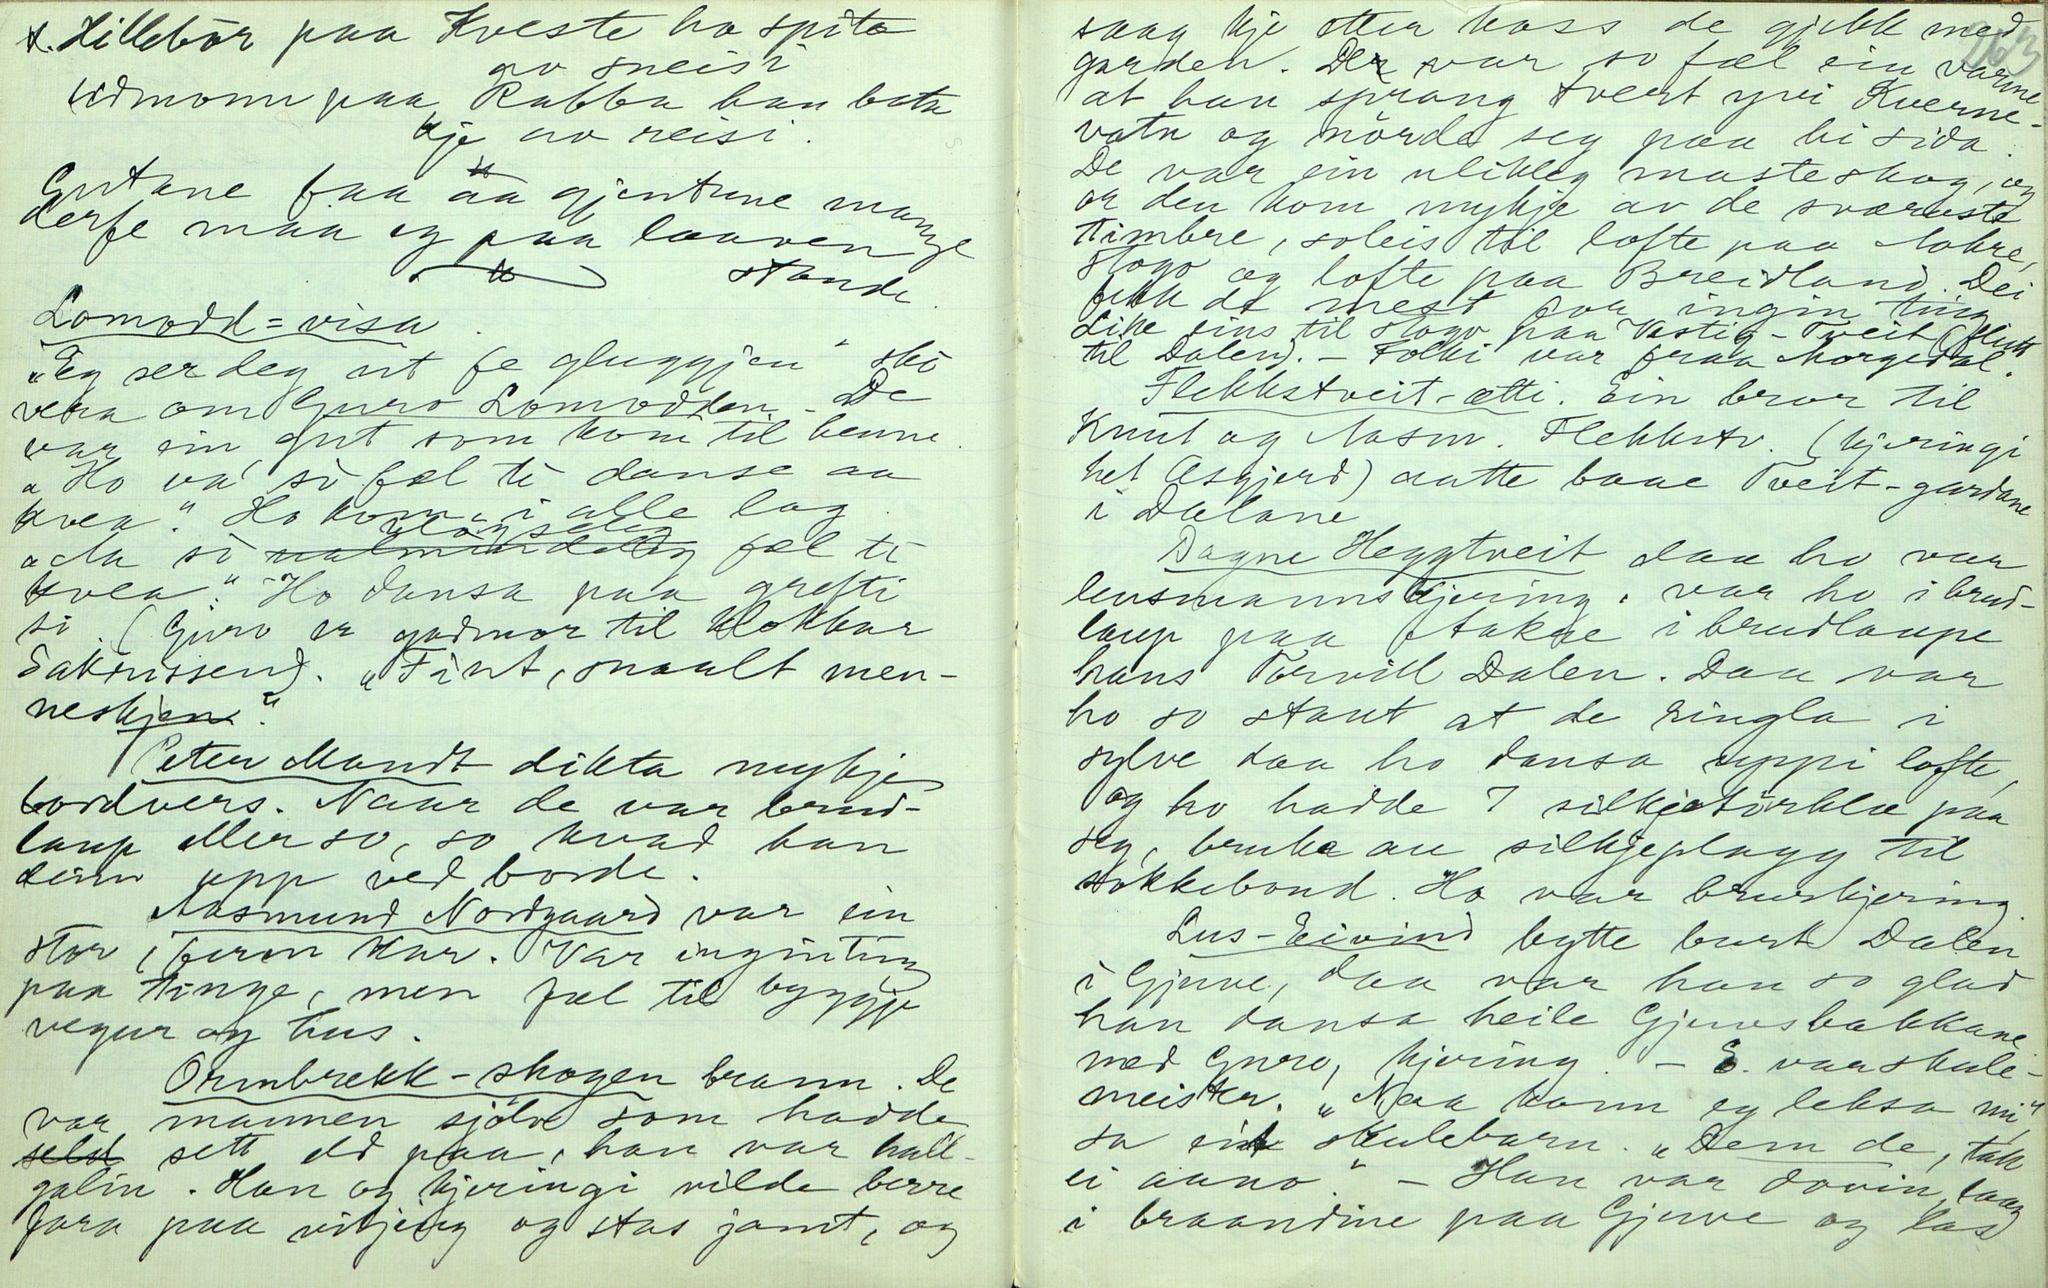 x. Hillebör paa Kveste ho spita
av sneisi
Edmonn paa Rabba han bata
kje av reisi.
Gutane faa aa gjentune mange
derfe maa eg paa laaven
stande.
Lomodd=visa.
"Eg ser deg ut fe gluggjen" sko
vera om Guro Lomodden. - De
var ein gut som kom til henne.
"Ho va' so fæl te danse aa
kvea." Ho kom i alle lag.
"Aa so vlögseleg fæl te
kvea." Ho dansa paa grefti
si. (Guro er gudmor til klokkar
Sakrissen). "Fint, snaalt men-
neskjen."
Peter Mandt dikta mykje
bordvers. Naar de var brud-
laup eller so, so kvad han
deim upp ved borde.
Aasmund Nordgaard var ein
stor, i form kar. Var ingjinting
paa tinge, men fæl til byggje
vegur og hus.
Ormbrekk-skogen brann. De
var mannen sjölv som hadde
sett eld paa, han var hall-
galin. Han og kjeringi vilde berre
fara paa vitjing og stas jamt, og
163
saag kje etter hoss de gjekk med
garden. De var so fæl ein varme
at han sprang tvert yvi Kverne-
vatn og nörde seg paa hi sida.
De var ein ulikleg masteskog, og
or den kom mykje av de sværaste
timbre, soleis til lofte paa Aakre,
stogo og lofte paa Breidland. Dei
fekk de mest for ingin ting.
Like eins til stogo paa Vestig-Tveit (flutt
til Dalen). - Folki var fraa Morgedal.
Flekkstveit-ætti. Ein bror til
Knut og Aasm. Flekkstv. (kjeringi
het Asgjerd) aatte baae Tveit-gardane
i Dalane
Dagne Heggtveit daa ho var
lensmannskjering, var ho i brud-
laup paa Aakre i brudlaupe
hans Torvill Dalen. Daa var
ho so staut at de ringla i
sylve daa ho dansa uppi lofte,
og ho hadde 7 silkjetörklæ paa
seg, bruka au silkjeplagg til
sokkebond. Ho var brurkjering.
Lus-Eivind bytte burt Dalen
i Gjuve, daa var han so glad
han dansa heile Gjuvsbakkane
med Guro, kjering. - E. var skule-
meister. "Naa kann eg leksa mi,"
sa eit skulebarn. "Dem de, tak
ei anno." - Han var dovin, laag
i braandine paa Gjuve og las